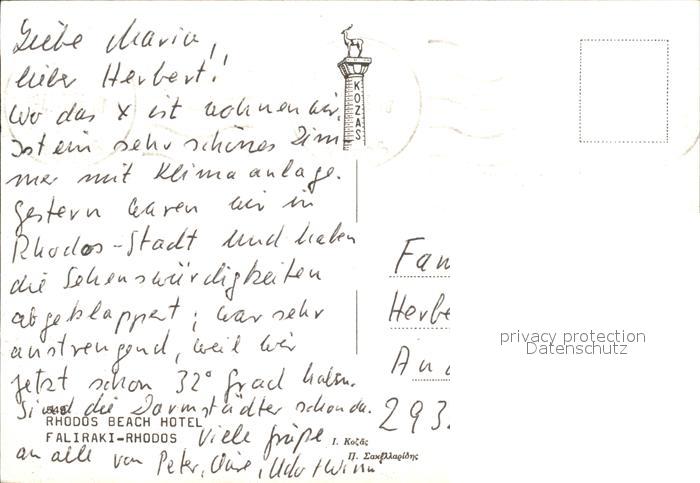 Liebe Maria,
lieber Herbert!
Wo das X ist wohnen wir.
Ist ein sehr schönes Zim
mer mit Klimaanlage.
Gestern waren wir in
Rhodos-Stadt und haben
die Sehenswürdigkeiten
abgeklappert; war sehr
anstrengend, weil wir
jetzt schon 32° Grad haben.
Sind die Darmstädter schon da.
Viele Grüße
an alle von Peter, Udo +
548
RHODOS BEACH HOTEL
FALIRAKI-RHODOS
KOZAS
Ι. Κοζᾶς
Π. Σακελλαρίδης
Fam
Herbe
An
293.
privacy protection
Datenschutz